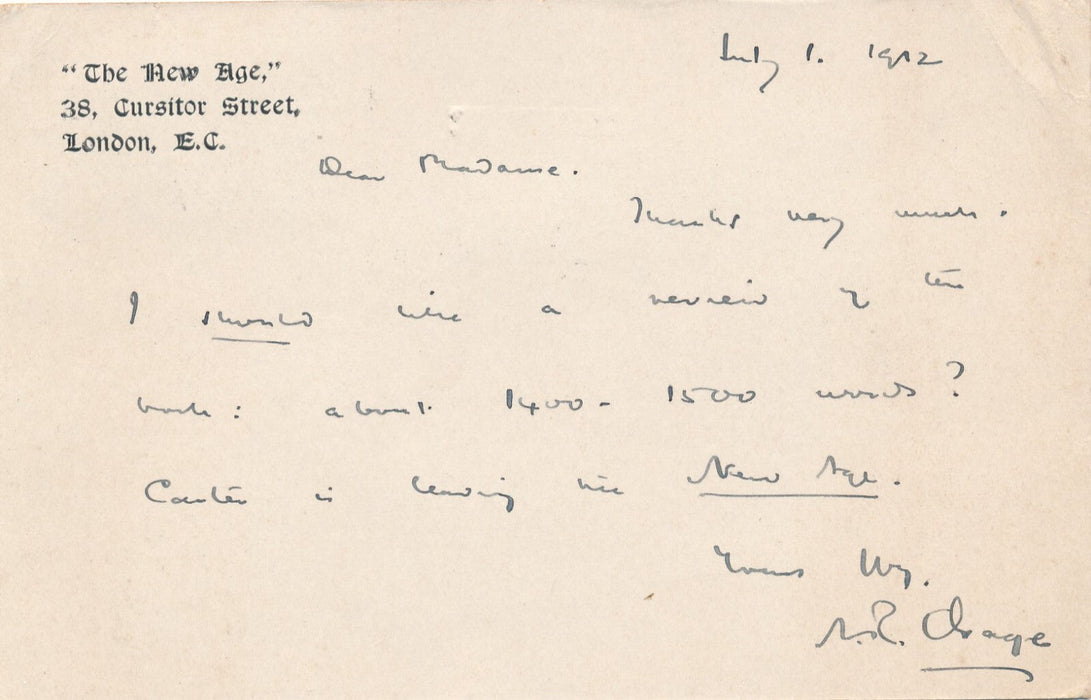 "The New Age,"
38, Cursitor Street,
London, E.C.
July 1. 1912
Dear Madame.
Thanks very much.
I should like a review of the
book: about 1400 - 1500 words?
is leaving the New Age.
Yours
A.R. Orage